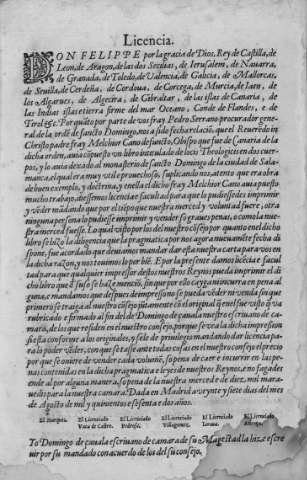 Licencia.
DON FELIPPE por la gracia de Dios, Rey de Castilla, de
Leon, de Aragon, de las dos Secilias, de Ierusalem, de Nauarra,
de Granada, de Toledo, de Valencia, de Galicia, de Mallorcas,
de Seuilla, de Cerdeña, de Cordoua, de Corcega, de Murcia, de Iaen, de
los Algarues, de Algezira, de Gibraltar, de las islas de Canaria, de
las Indias islas e tierra firme del mar Oceano, Conde de Flandes, e de
Tirol, &c. Por quãto por parte de vos fray Pedro Serrano procurador gene
ral de la ordẽ de sancto Domingo, nos a sido fecha relaciõ, que el Reuerẽdo in
Christo padre fray Melchior Cano de sancto Obispo que fue de Canaria de la
dicha orden, auia cõpuesto vn libro intitulado de locis Theologicis en dos cuer
pos, y lo auia dexado al monasterio de sancto Domingo de la ciudad de Sala-
manca, el qual era muy vtil e prouechoso, suplicando nos, atento que era obra
de buen exemplo, y doctrina, y en ella el dicho fray Melchior Cano auia puesto
mucho trabajo, diessemos licencia e facultad para que lo pudiessedes imprimir
y vẽder mãdando que por el tiẽpo que nuestra merced y voluntad fuere, otra
ninguna persona lo pudiesse imprimir y vender so graues penas, o como la nue-
stra merced fuesse. Lo qual visto por los del nuestro cõsejo por quanto en el dicho
libro se hizo la diligencia que la pragmatica por nos agora nueuamẽte fecha di
spone, fue acordado que deuiamos mandar dar esta nuestra carta para vos en
la dicha razon, y nos tuuimos lo por biẽ. E por la presente damos licẽcia e facul
tad para que qualquier impressor destos nuestros Reynos pueda imprimir el di
cho libro que de suso se haze menciõ, sin que por ello cayga ni incurra en pena al
guna, e mandamos que despues de impresso no se pueda vẽder ni venda sin que
primero se trayga al nuestro cõsejo jũtamente cõ el original q̃ en el fue visto q̃ va
rubricado e firmado al fin del de Domingo de çauala nuestro escriuano de ca-
mara, de los que residen en el nuestro consejo, porque se vea la dicha impression
si esta conforme a los originales, y se le de priuilegio mandando dar licencia pa
ra lo poder vẽder, con que se tasse ante todas cosas en el nuestro consejo el precio
por que se ouiere de vender cada volumẽ, so pena de caer e incurrir en las pe-
nas contenidas en la dicha pragmatica e leyes de nuestros Reynos, e no fagades
ende al por alguna manera, so pena de la nuestra merced e de diez mil mara-
uedis para la nuestra camara. Dada en Madrid a veynte y siete dias del mes
de Agosto, de mil y quinientos e sesenta e dos años.
El Marques. El Licenciado Vaca de Castro. El Licenciado Pedrosa. El Licenciado Villagomez. El Licenciado
Yo Domingo de çauala escriuano de camara de su Magestad la hize escre
uir por su mandado con acuerdo de los del su consejo.